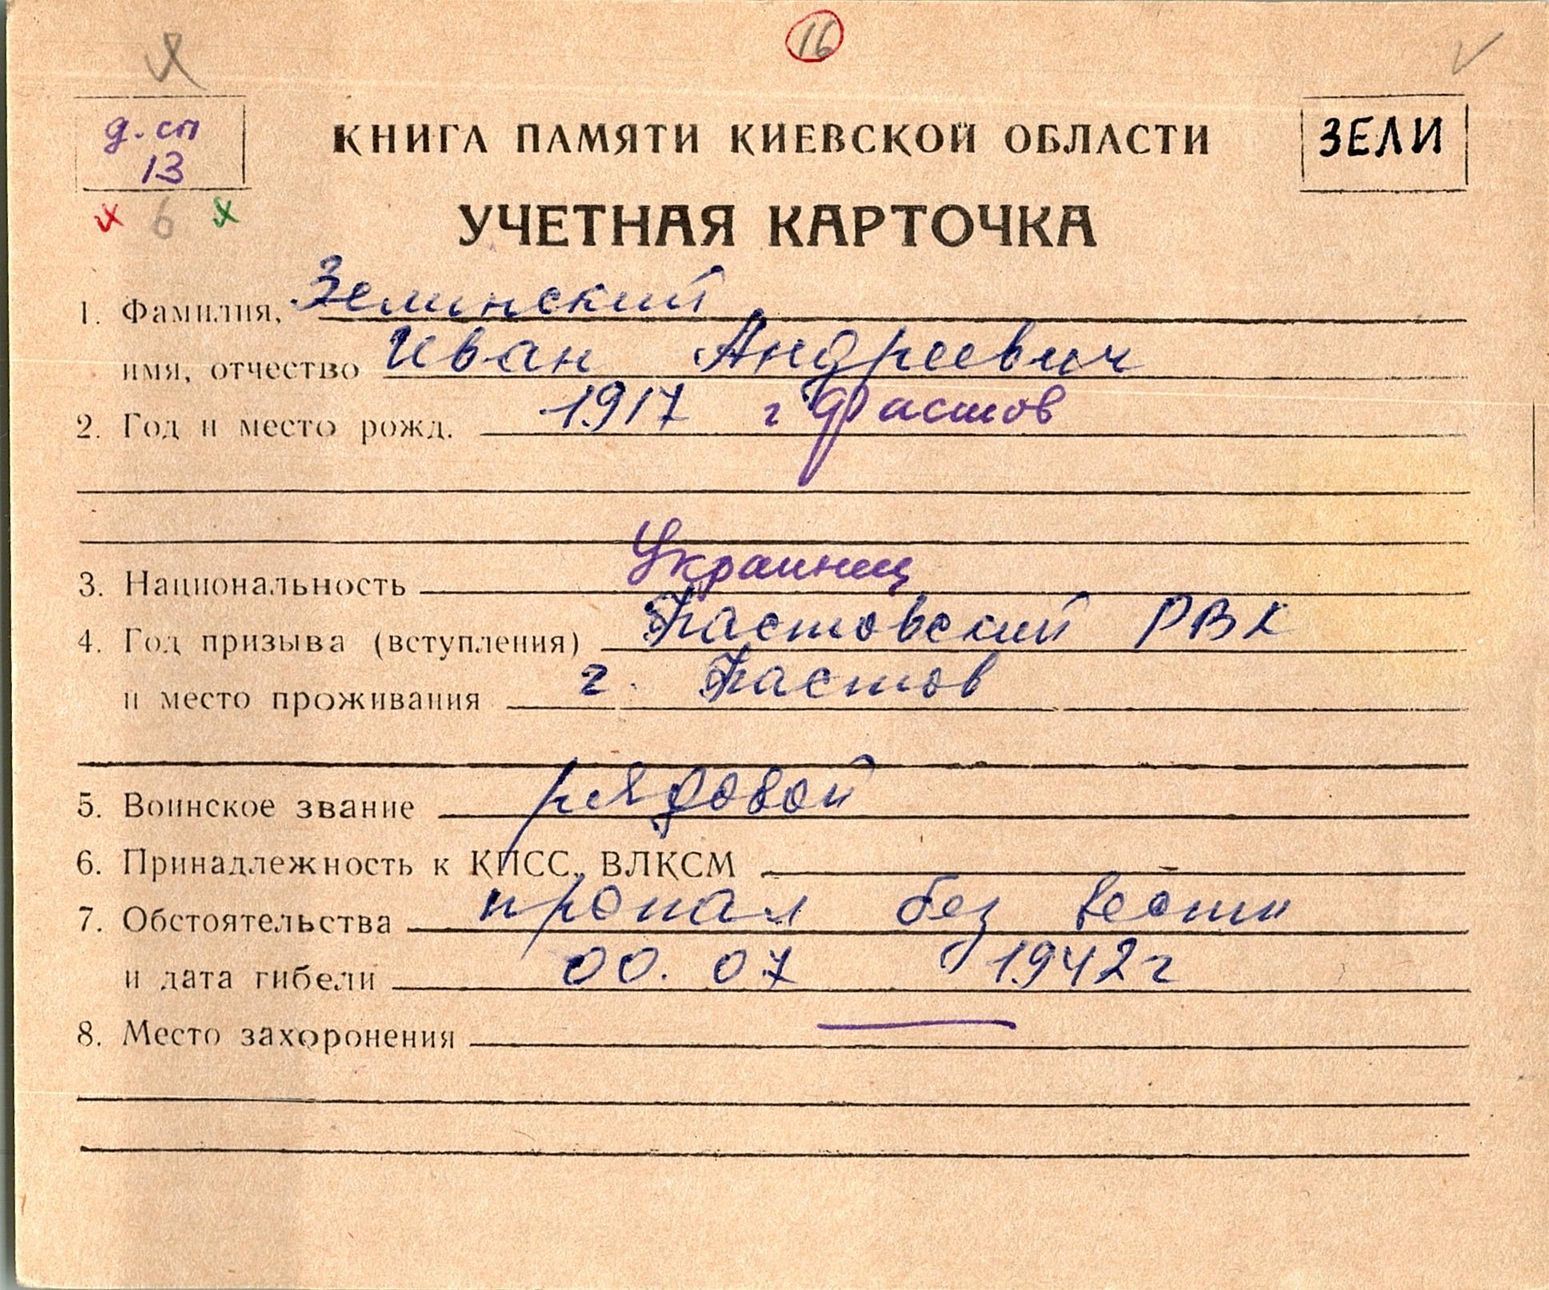 16
д. сп
13
6
КНИГА ПАМЯТИ КИЕВСКОЙ ОБЛАСТИ
ЗЕЛИ
УЧЕТНАЯ КАРТОЧКА
1. Фамилия, Зелинский
имя, отчество Иван Андреевич
2. Год и место рожд. 1917 г Фастов
3. Национальность Украинец
4. Год призыва (вступления) Фастовский РВК
и место проживания г. Фастов
5. Воинское звание рядовой
6. Принадлежность к КПСС, ВЛКСМ
7. Обстоятельства пропал без вести
и дата гибели 00. 07 1942г
8. Место захоронения —